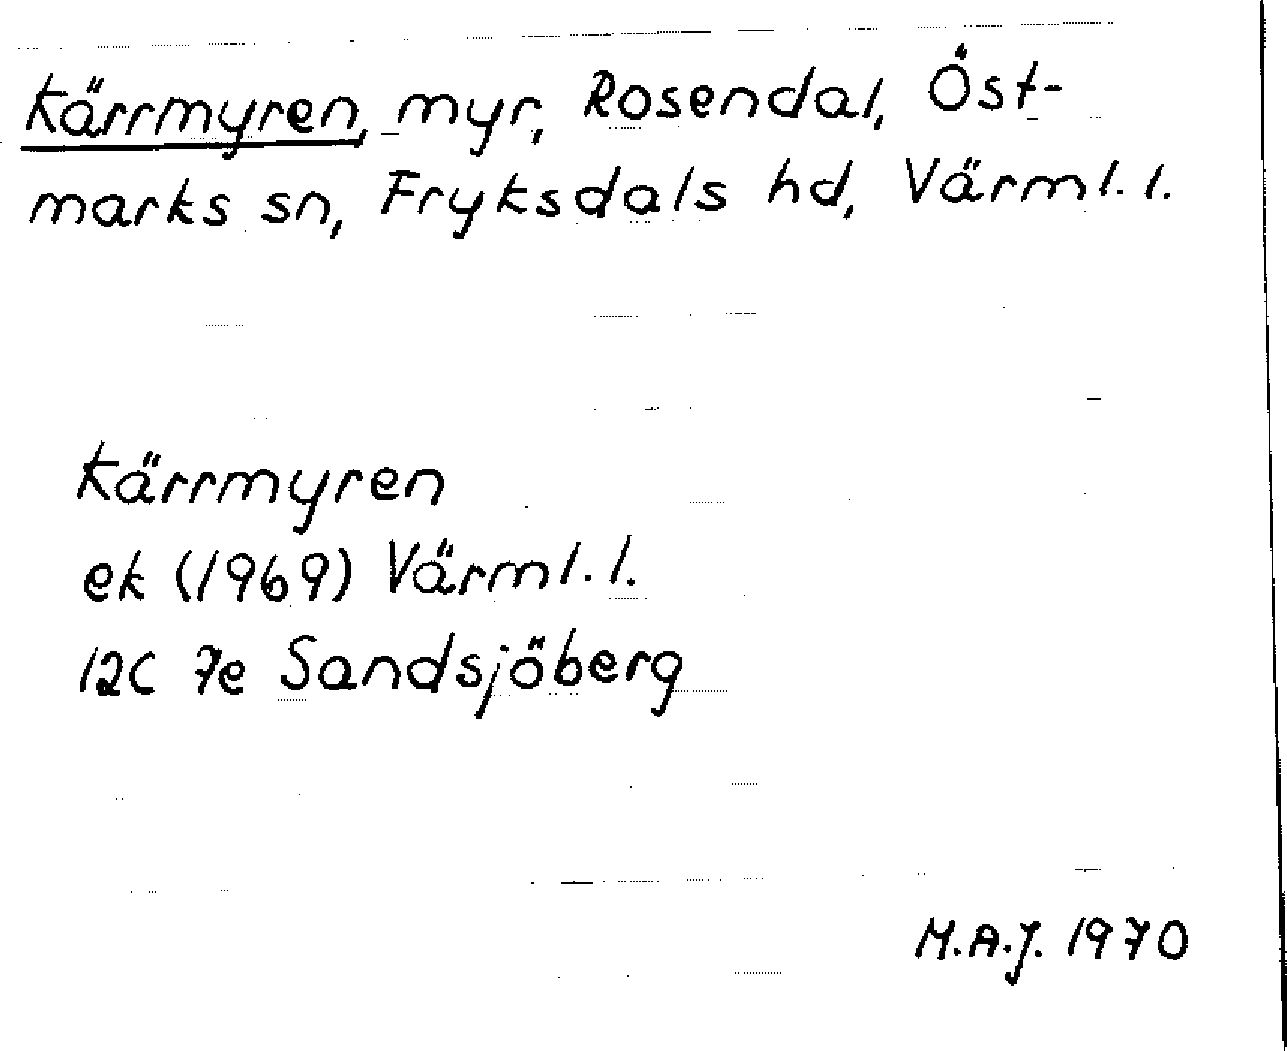 Kärrmyren, myr, Rosendal, Öst-
marks sn, Fryksdals hd, Värml. l.
Kärrmyren
ek (1969) Värml. l.
12C 7e Sandsjöberg
M.A.J. 1970